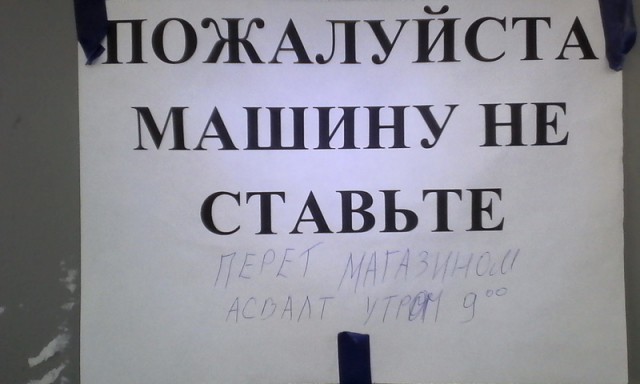 ПОЖАЛУЙСТА
МАШИНУ НЕ
СТАВЬТЕ
ПЕРЕТ МАГАЗИНОМ
АСВАЛТ УТРОМ 9⁰⁰